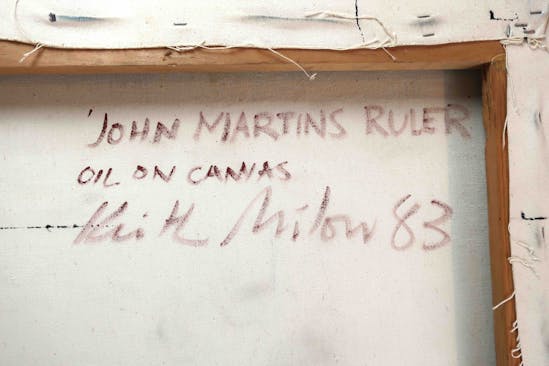 'JOHN MARTINS RULER
OIL ON CANVAS
Keith Milow 83